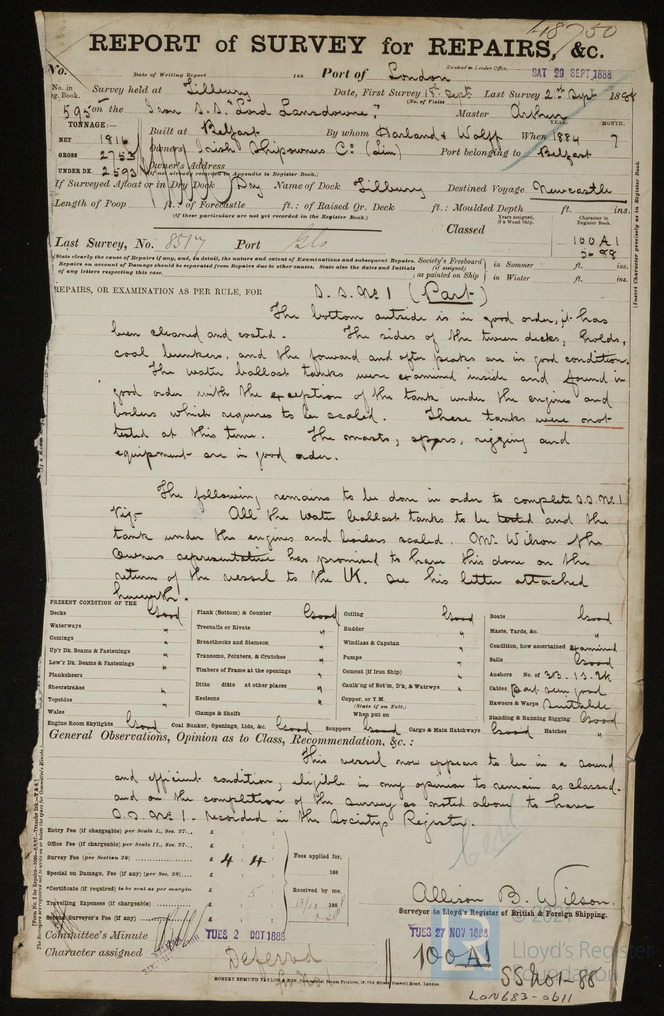 48750
REPORT of SURVEY for REPAIRS, &c.
No. Date of Writing Report 188 Port of London Received in London Office, SAT 29 SEPT 1888
No. in Reg. Book. Survey held at Tilbury Date, First Survey 1st Sept. Last Survey 2nd Sept 1888
(No. of Visits
595 on the Iron S.S. "Lord Lansdowne," Master Arthur
TONNAGE:— YEAR. MONTH.
NET 1816 Built at Belfast By whom Harland & Wolff When 1884 7
GROSS 2753 Owners Irish Shipowners Co (Lim) Port belonging to Belfast
UNDER DK. 2593 Owner's Address
(if not already recorded in Appendix to Register Book.)
If Surveyed Afloat or in Dry Dock Dry Name of Dock Tilbury Destined Voyage Newcastle
Length of Poop ft.: of Forecastle ft.: of Raised Qr. Deck ft.: Moulded Depth ft. ins.
(if these particulars are not yet recorded in the Register Book.)
Years assigned, if a Wood Ship. Character in Register Book.
Classed
Last Survey, No. 8517 Port Gls 100A1
5-88
State clearly the cause of Repairs if any, and, in detail, the nature and extent of Examinations and subsequent Repairs.
Repairs on account of Damage should be separated from Repairs due to other causes. State also the dates and Initials
of any letters respecting this case.
Society's Freeboard (if assigned) as painted on Ship in Summer ft. ins.
in Winter ft. ins.
(Insert Character precisely as in Register Book
REPAIRS, OR EXAMINATION AS PER RULE, FOR S.S. No 1 (Part)
The bottom outside is in good order, it has
been cleaned and coated. The sides of the tween decks, holds,
coal bunkers, and the forward and after peaks are in good condition.
The water ballast tanks were examined inside and found in
good order with the exception of the tank under the engines and
boilers which requires to be scaled. These tanks were not
tested at this time. The masts, spars, rigging and
equipment are in good order.
The following remains to be done in order to complete S.S. No 1
Viz- All the water ballast tanks to be tested and the
tank under the engines and boilers scaled. Mr. Wilson the
Owners representative has promised to have this done on the
return of the vessel to the UK. see his letter attached
herewith.
PRESENT CONDITION OF THE
Decks Good Plank (Bottom) & Counter Good Ceiling Good Boats Good
Waterways " Treenails or Rivets " Rudder " Masts, Yards, &c. "
Comings " Breasthooks and Stemson " Windlass & Capstan " Condition, how ascertained examined
Up'r Dk. Beams & Fastenings " Transoms, Pointers, & Crutches " Pumps " Sails Good
Low'r Dk. Beams & Fastenings " Timbers of Frame at the openings " Cement (if Iron Ship) " Anchors No. of 3B. 1S. 2K
Planksheers " Ditto ditto at other places " Caulk'ng of Bot'm, D'k, & Waterwys " Cables Part seen good
Sheerstrakes " Keelsons " Copper, or Y.M. Hawsers & Warps Suitable
Topsides " Clamps & Shelfs (State if on Felt.) Standing & Running Rigging Good
Wales " When put on
Engine Room Skylights Good Coal Bunker, Openings, Lids, &c. Good Scuppers Good Cargo & Main Hatchways Good Hatches "
General Observations, Opinion as to Class, Recommendation, &c. :
This vessel now appears to be in a sound
and efficient condition, eligible in my opinion to remain as classed.
and on the completion of the survey as noted above to have
S.S. No 1. recorded in the Society's Register.
Entry Fee (if chargeable) per Scale I., Sec. 27... £ : :
Office Fee (if chargeable) per Scale II., Sec. 27... £ : :
Survey Fee (per Section 28) £ 4 : 4 : Fees applied for,
Special on Damage, Fee (if any) (per Sec. 28) £ : : 188
*Certificate (if required) to be sent as per margin 5 Received by me,
Travelling Expenses (if chargeable) £ : : 13/10 1888
Second Surveyor's Fee (if any) £ : :
Allison B. Wilson
Surveyor to Lloyd's Register of British & Foreign Shipping.
Committee's Minute TUES 2 OCT 1888 TUES 27 NOV 1888
Character assigned Deferred 100A1
SS No1-88
ROBERT EDMUND TAYLOR & SON, Commercial Steam Printers, 19, Old Street, Goswell Road, London.
LON683-0611
© 2021
Lloyd's Register
Foundation